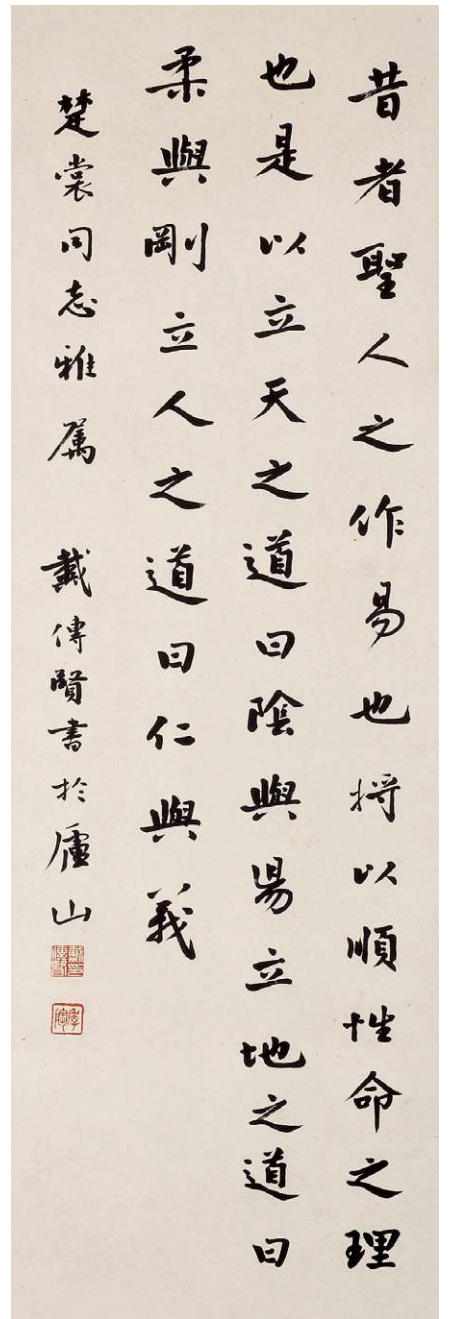 昔者聖人之作易也將以順性命之理
也是以立天之道曰陰與昜立地之道曰
柔與剛立人之道曰仁與義
楚裳同志雅属 戴傳賢書於廬山